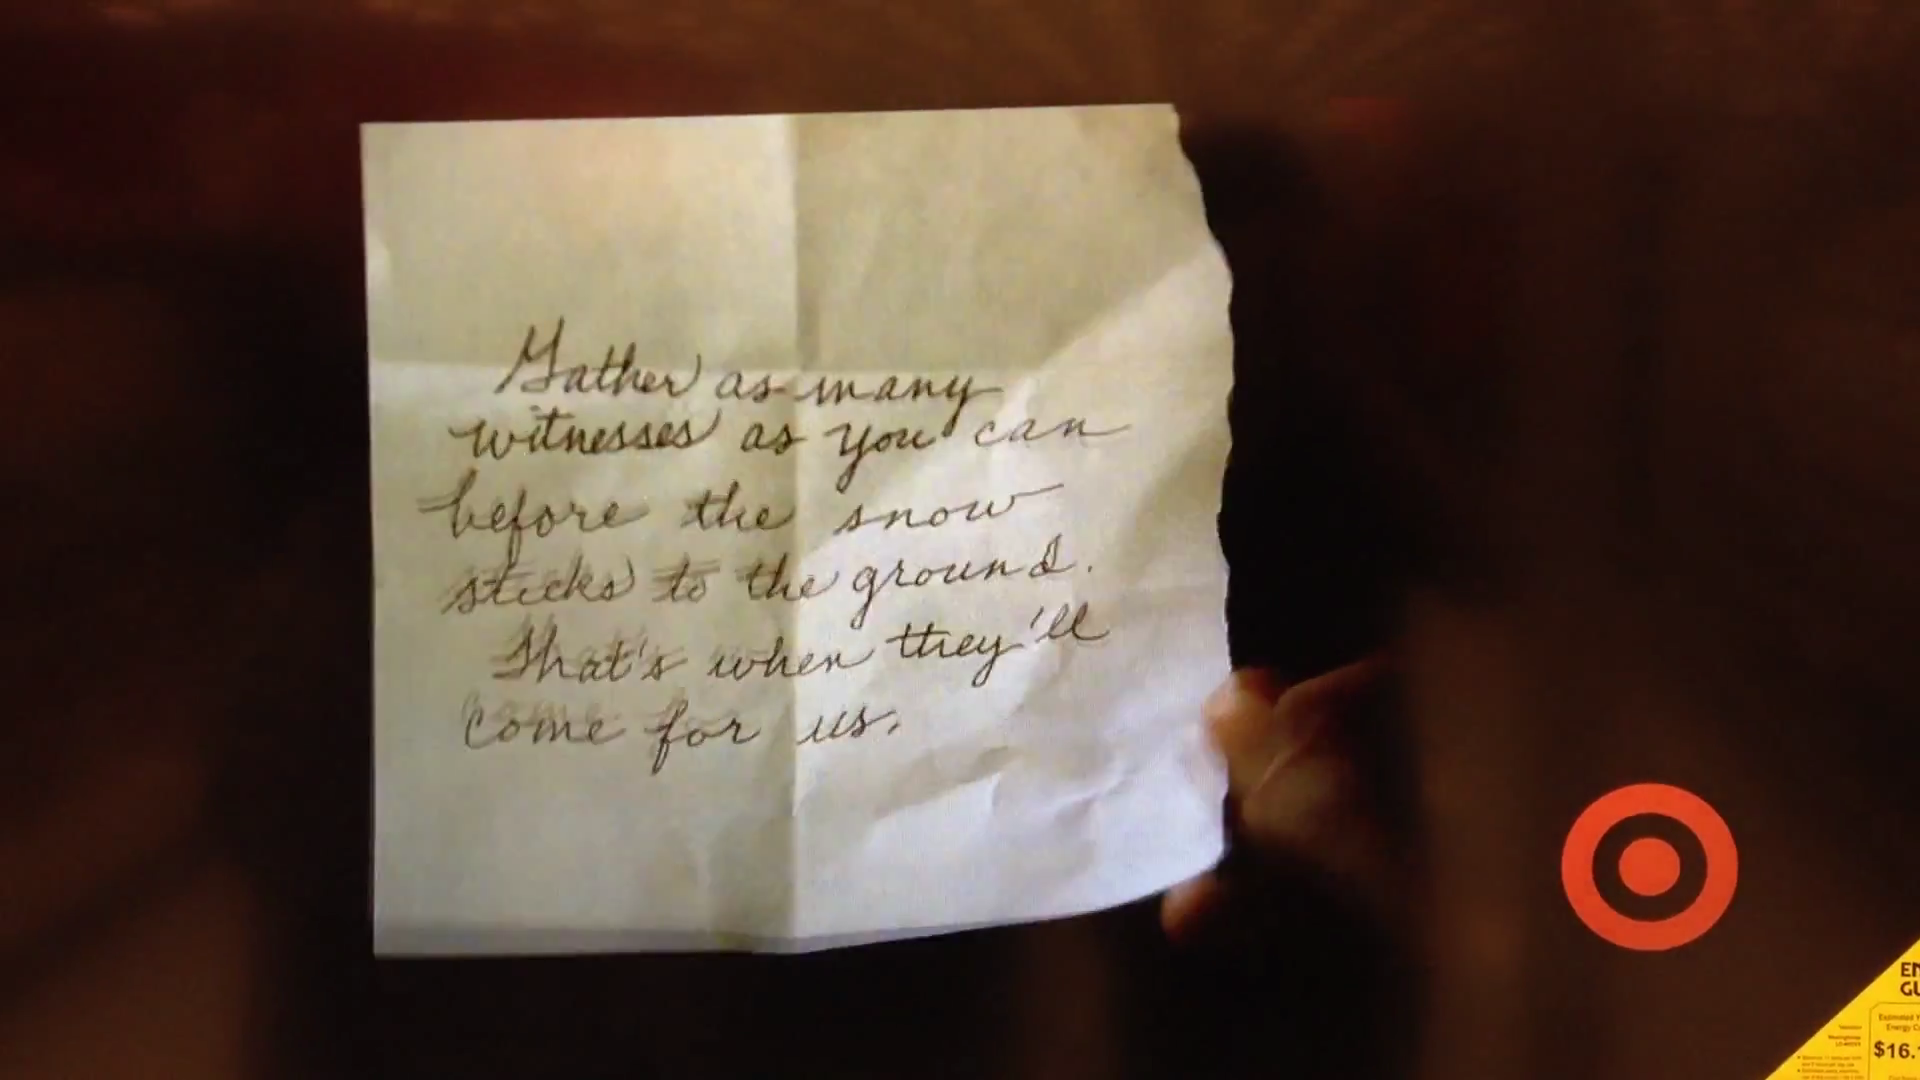 Gather as many
witnesses as you can
before the snow
sticks to the ground.
That's when they'll
come for us.
Estimated
Energy
$16.